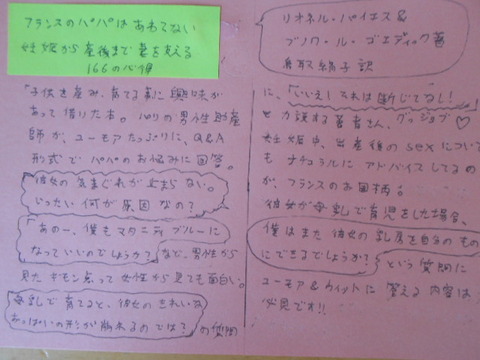 フランスのパパはあわてない
妊娠から産後まで妻を支える
166の心得
「子供を産み、育てる事に興味が
あって借りた本。パリの男性助産
師が、ユーモアたっぷりに、Q&A
形式でパパのお悩みに回答。
「彼女の気まぐれが止まらない。
いったい何が原因なの?
「あのー、僕もマタニティブルーに
なっていいのでしょうか?」など、男性から
見たギモン点って女性から見ても面白い。
「母乳で育てると、彼女のきれいな
おっぱいの形が崩れるのでは?」の質問
リオネル・パイエス&
ブノワ・ル・ゴエディック著
鳥取絹子 訳
に、「いいえ!それは断じてなし!」
と力説する著者さん、グッジョブ♡
妊娠中、出産後のsexについて
もナチュラルにアドバイスしてるの
が、フランスのお国柄。
彼女が母乳で育児をした場合、
僕はまた彼女の乳房を自分のもの
にできるでしょうか?という質問に
ユーモア&ウィットに答える内容は
必見です!!